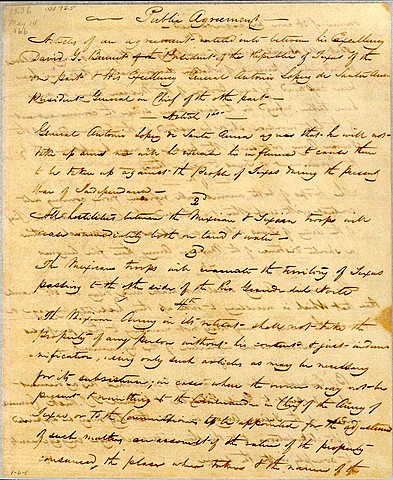 1836 No 725
May 14
Public Agreement
Articles of an agreement entered into between his Excellency
David G. Burnet of the President of the Republic of Texas of the
one part & His Excellency General Antonio Lopez de Santa Anna
President General in Chief of the other part —
Article 1st —
General Antonio Lopez de Santa Anna agrees that he will not
take up arms nor will he exercise his influence to cause them
to be taken up against the People of Texas during the present
War of Independence —
2
All hostilities between the Mexican & Texian troops will
cease immediately both on land & water —
3
The Mexican troops will evacuate the territory of Texas
passing to the other side of the Rio Grande del Norte
4th
The Mexican Army in its retreat shall not take the
property of any person without his consent & just indem-
nification, using only such articles as may be necessary
for its subsistence, in cases where the owner may not be
present & remitting to the Commander in Chief of the Army of
Texas or to the Commissioner to be appointed for the adjustment
of such matters, an account of the value of the property
consumed, the place where taken & the name of the